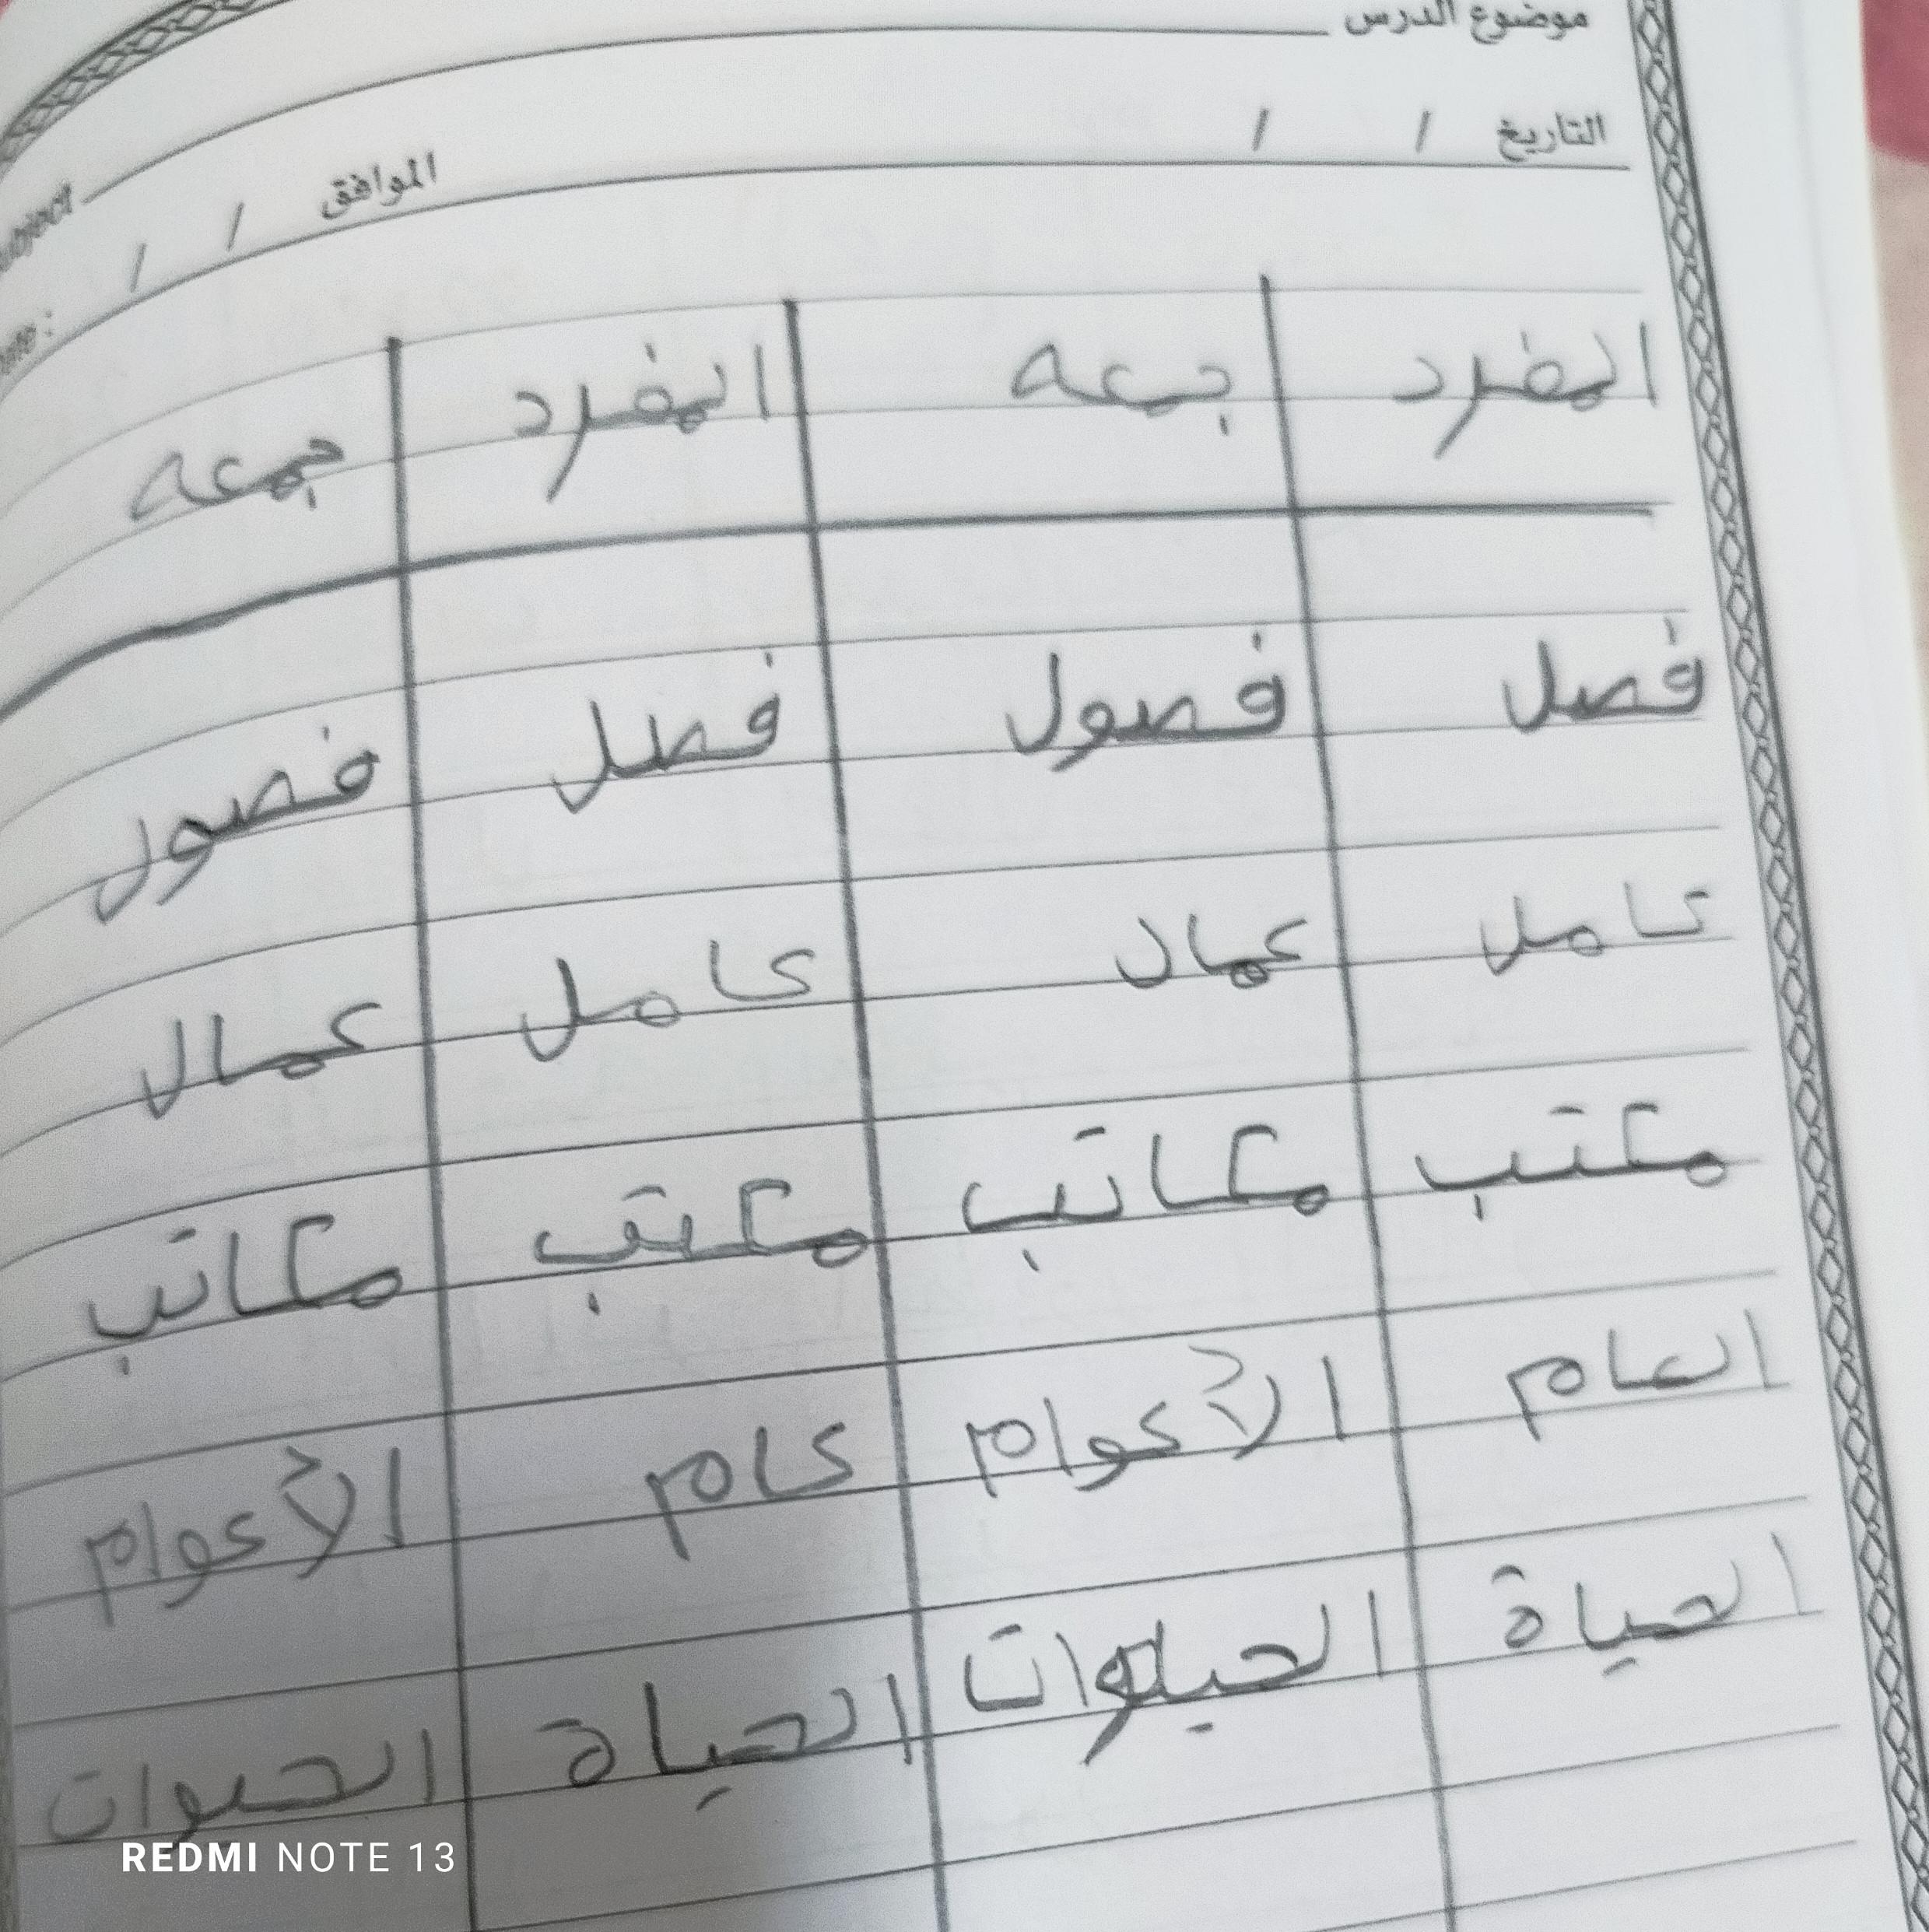 موضوع الدرس
التاريخ / / الموافق / /
المفرد جمعه المفرد جمعه
فصل فصول فصل فصول
كامل كمال كامل كمال
مكتب مكاتب مكتب مكاتب
العام الأعوام عام الأعوام
الحياة الحيوات الحياة الحيوات
REDMI NOTE 13